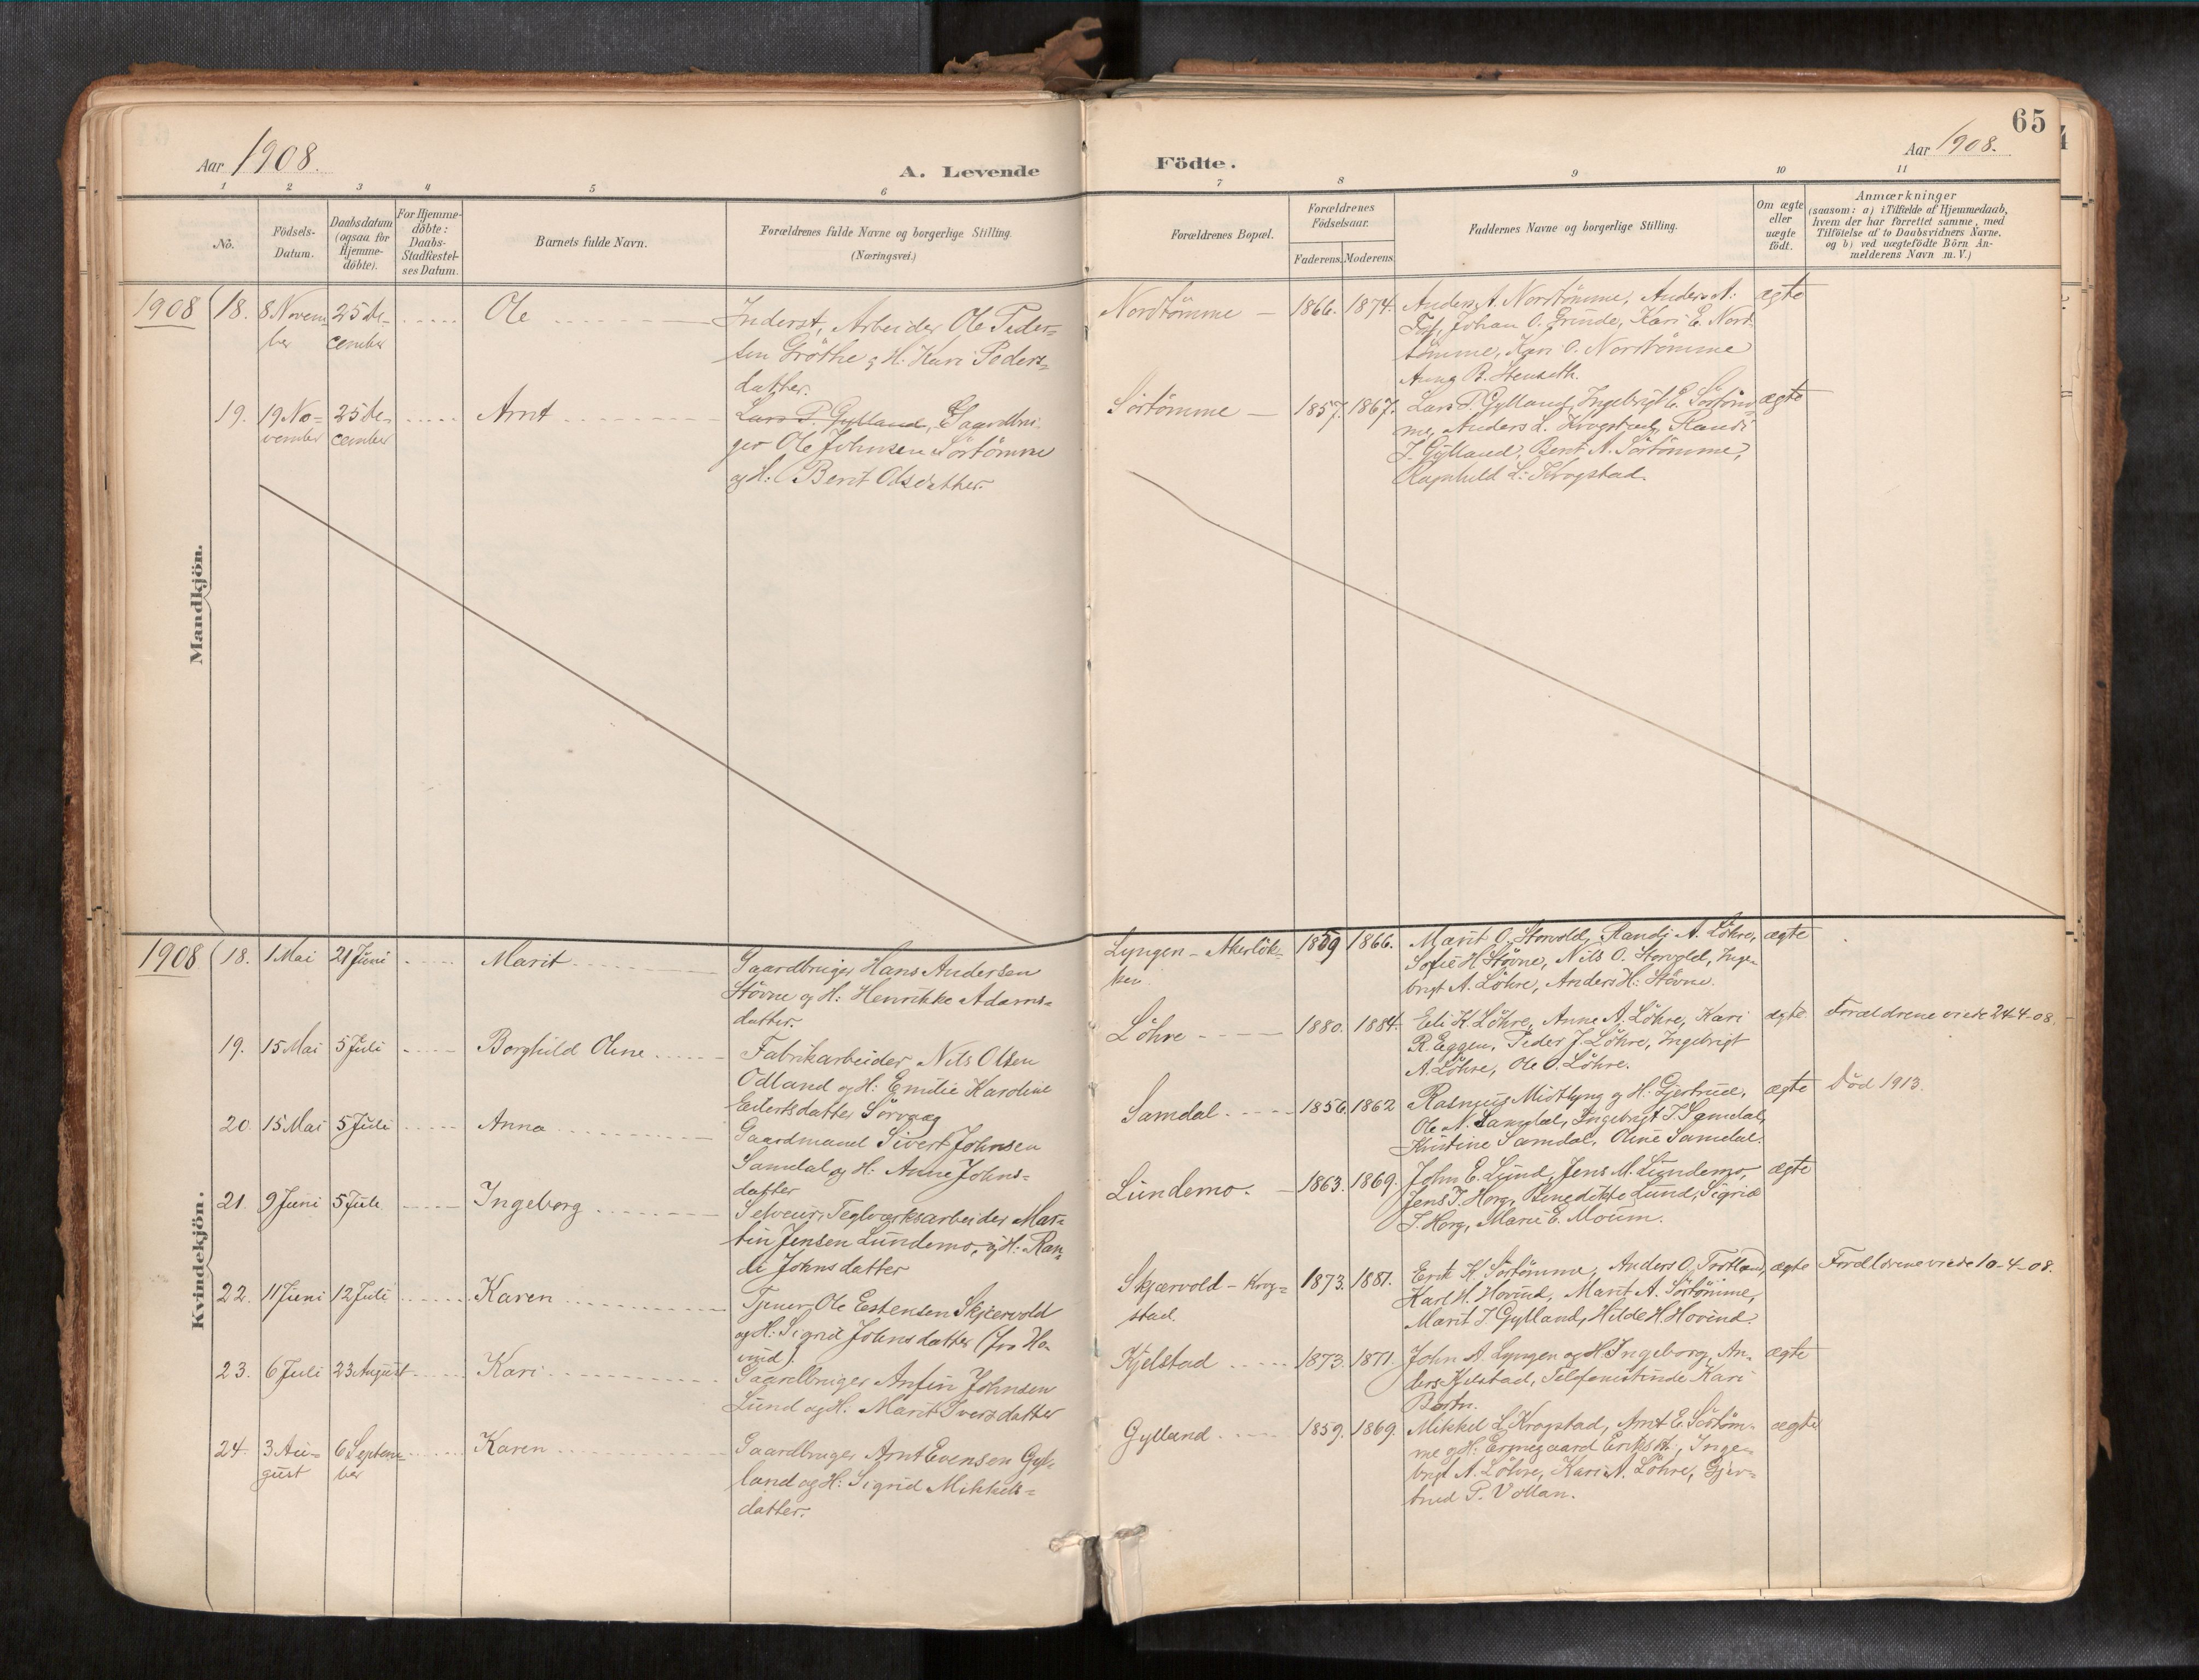 65
Aar 1908.
A. Levende Födte.
Aar 1908.
1 2 3 4 5 6 7 8 9 10 11
No.
Födsels-
Datum.
Daabsdatum
(ogsaa for
Hjemme-
döbte).
For Hjemme-
döbte:
Daabs-
Stadfæstel-
ses Datum.
Barnets fulde Navn.
Forældrenes fulde Navne og borgerlige Stilling.
(Næringsvei.)
Forældrenes Bopæl.
Forældrenes
Födselsaar.
Faderens. Moderens.
Faddernes Navne og borgerlige Stilling.
Om ægte
eller
uægte
födt.
Anmærkninger
(saasom: a) i Tilfælde af Hjemmedaab,
hvem der har forrettet samme, med
Tilföielse af to Daabsvidners Navne.
og b) ved uægtefödte Börn An-
melderens Navn m. V.)
Mandkjön.
1908
18.
8 Novem
ber
25 De-
cember
Ole
Inderst, Arbeider Ole Peder-
sen Gröthe og H. Kari Peders-
datter.
Nordtömme
1866. 1874.
Anders A. Nordtömme, Anders A.
Johan O. Grinde, Kari E. Nord-
tömme, Kari O. Nordtömme
Anna B. Stenseth.
ægte
19.
19 No-
vember
25 De-
cember
Arnt
Lars P. Gylland, Gaardbru-
ger Ole Johnsen Sörtömme
og H: Berit Olsdatter.
Sörtömme
1857. 1867.
Lars P. Gylland, Ingebrigt E. Sörtöm-
me, Anders L. Krogstad, Randi
J. Gylland, Berit A. Sörtömme,
Ragnhild L. Krogstad.
ægte
Kvindekjön.
1908
18.
1 Mai
21 Juni
Marit
Gaardbruger Hans Andersen
Stövne og H: Henrikke Adams-
datter.
Lyngen - Akerlök-
ken.
1859 1866.
Marit O. Storvold, Randi A. Löhre,
Sofie H. Stövne, Nils O. Storvold, Inge-
brigt A. Löhre, Anders H. Stövne.
ægte
19.
15 Mai
5 Juli
Borghild Oline
Fabrikarbeider Nils Olsen
Odland og H: Emilie Karoline
Eilertsdatter Sörvaag
Löhre
1880. 1884.
Eli K. Löhre, Anne A. Löhre, Kari
R. Eggen, Peder J. Löhre, Ingebrigt
A. Löhre, Ole O. Löhre.
ægte
Forældrene viede 24-4-08.
20
15 Mai
5 Juli
Anna
Gaardmand Sivert Johnsen
Samdal og H: Anne Johns-
datter
Samdal
1856. 1862
Rasmus Midtlyng og H. Gjertrud,
Ole N. Samdal, Ingebrigt J. Samdal,
Kristine Samdal, Oline Samdal.
ægte
Död 1913.
21.
9 Juni
5 Juli
Ingeborg
Selveier, Teglværksarbeider Mar-
tin Jensen Lundemo, og H: Ran-
di Johnsdatter
Lundemo.
1863. 1869.
John E. Lund, Jens M. Lundemo,
Jens J. Horg, Benedikte Lund, Sigrid
J. Horg, Marie E. Moum.
ægte
22.
11 Juni
12 Juli
Karen
Tjener Ole Estensen Skjærvold
og H: Sigrid Johnsdatter (fra Ho-
vind).
Skjærvold - Krog-
stad.
1873. 1881.
Erik K. Sörtömme, Anders O. Trotland,
Karl H. Hovind, Marit A. Sörtömme,
Marit J. Gylland, Hilde H. Hovind.
ægte
Foreldrene viede 10-4-08.
23.
6 Juli
23 August
Kari
Gaardbruger Anfin Johnsen
Lund og H. Marit Iversdatter
Kjelstad
1873. 1871.
John A. Lyngen og H. Ingeborg, An-
ders Kjelstad, Telefonistinde Kari
ægte
24.
3 Au-
gust
6 Septem-
ber
Karen
Gaardbruger Arnt Evensen Gyl-
land og H: Sigrid Mikkels-
datter.
Gylland
1859. 1869.
Mikkel L. Krogstad, Arnt E. Sörtöm-
me og H: Ermegaard Eriksdt., Inge-
brigt A. Löhre, Kari A. Löhre, Gjer-
trud P. Vollan.
ægte